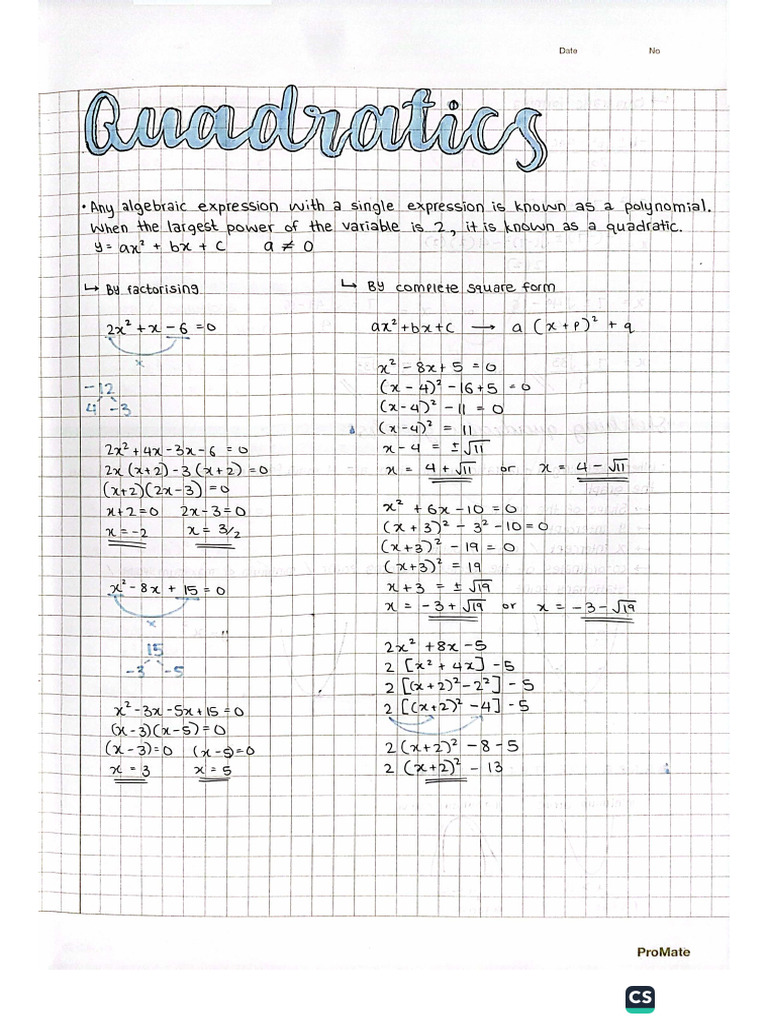 Date No
Quadratics
• Any algebraic expression with a single expression is known as a polynomial.
When the largest power of the variable is 2, it is known as a quadratic.
y = ax² + bx + c a ≠ 0
↳ By factorising
2x² + x - 6 = 0
x
-12
4 -3
2x² + 4x - 3x - 6 = 0
2x (x+2) - 3 (x+2) = 0
(x+2)(2x-3) = 0
x+2 = 0 2x-3=0
x = -2 x = 3/2
x² - 8x + 15 = 0
x
15
-3 -5
x² - 3x - 5x + 15 = 0
(x-3)(x-5) = 0
(x-3)=0 (x-5)=0
x = 3 x = 5
↳ By complete square form
ax² + bx + c → a (x + p)² + q
x² - 8x + 5 = 0
(x - 4)² - 16 + 5 = 0
(x-4)² - 11 = 0
(x-4)² = 11
x - 4 = ± √11
x = 4 + √11 or x = 4 - √11
x² + 6x - 10 = 0
(x + 3)² - 3² - 10 = 0
(x+3)² - 19 = 0
(x+3)² = 19
x + 3 = ± √19
x = -3 + √19 or x = -3 - √19
2x² + 8x - 5
2 [x² + 4x] - 5
2 [(x+2)² - 2²] - 5
2 [(x+2)² - 4] - 5
2 (x+2)² - 8 - 5
2 (x+2)² - 13
ProMate
CS